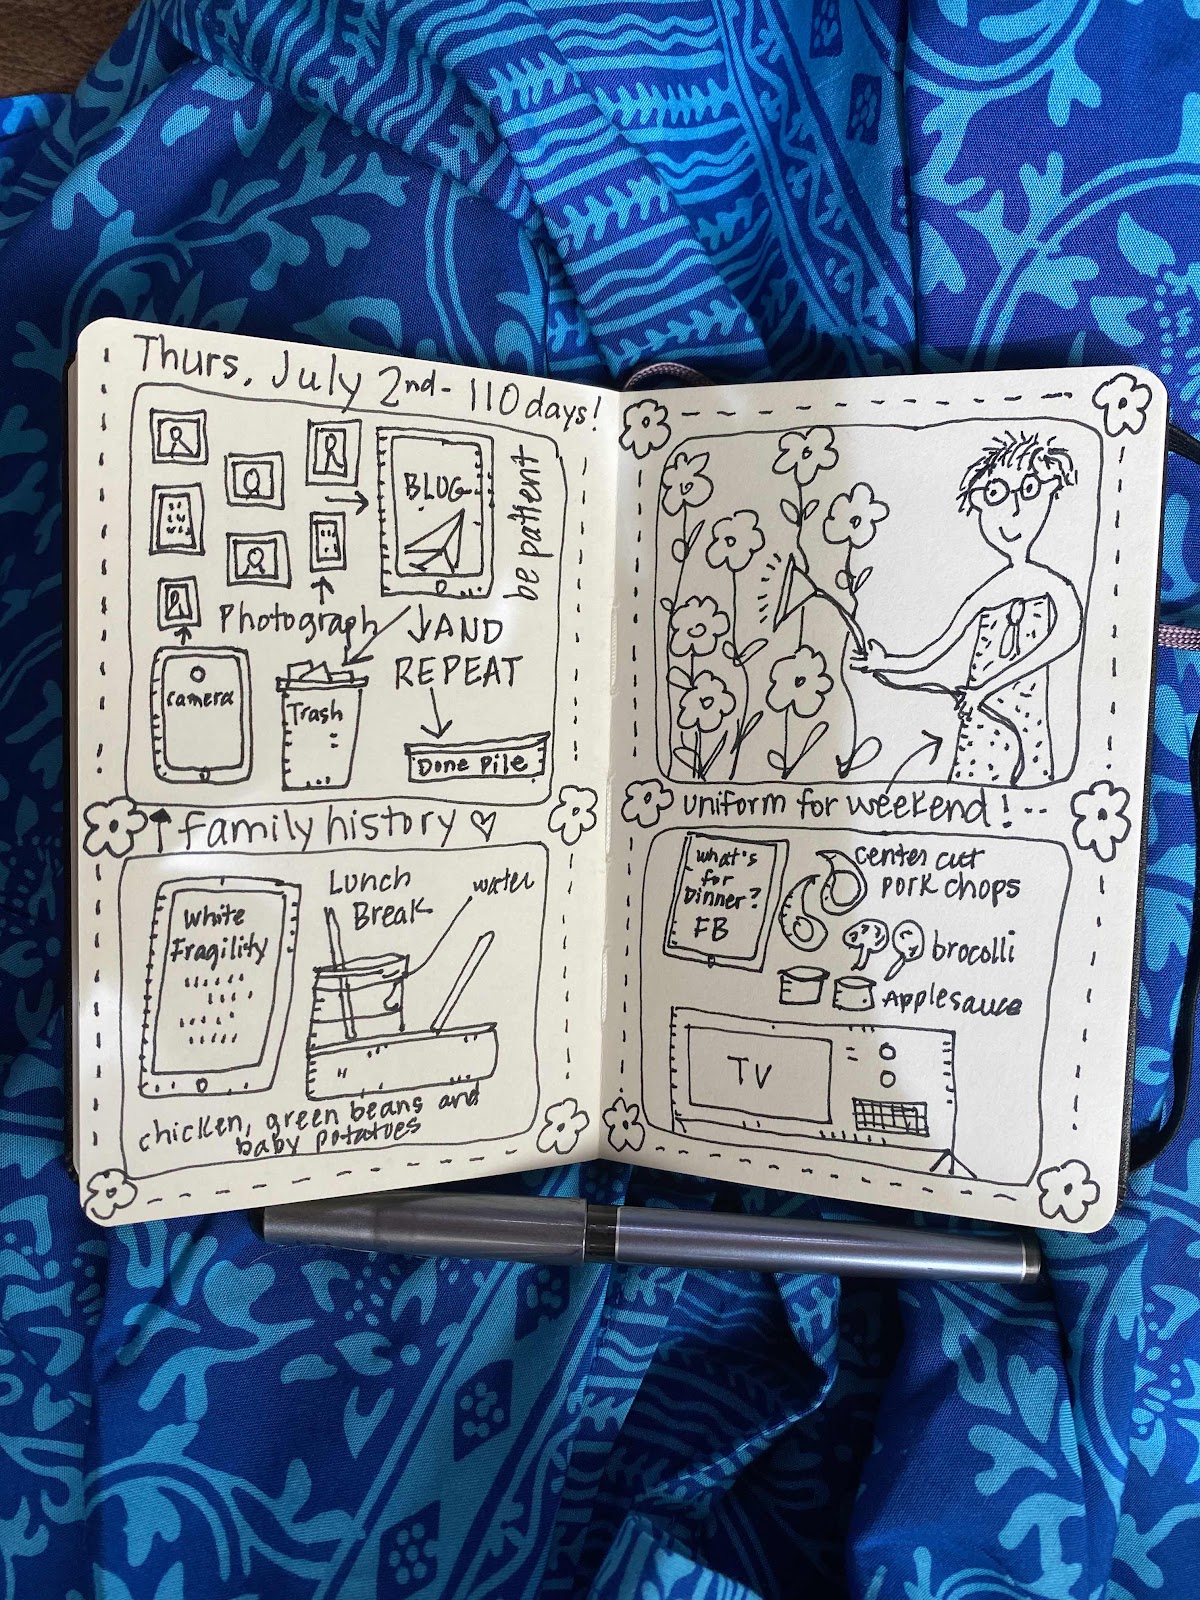 Thurs, July 2nd - 110 days!
BLOG
be patient
Photograph
AND
REPEAT
camera
Trash
Done Pile
family history
White
Fragility
Lunch
Break
water
chicken, green beans and
baby potatoes
uniform for weekend!..
what's
for
Dinner?
FB
center cut
pork chops
brocolli
Applesauce
TV